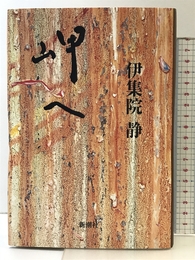 岬へ
伊集院 静
新潮社